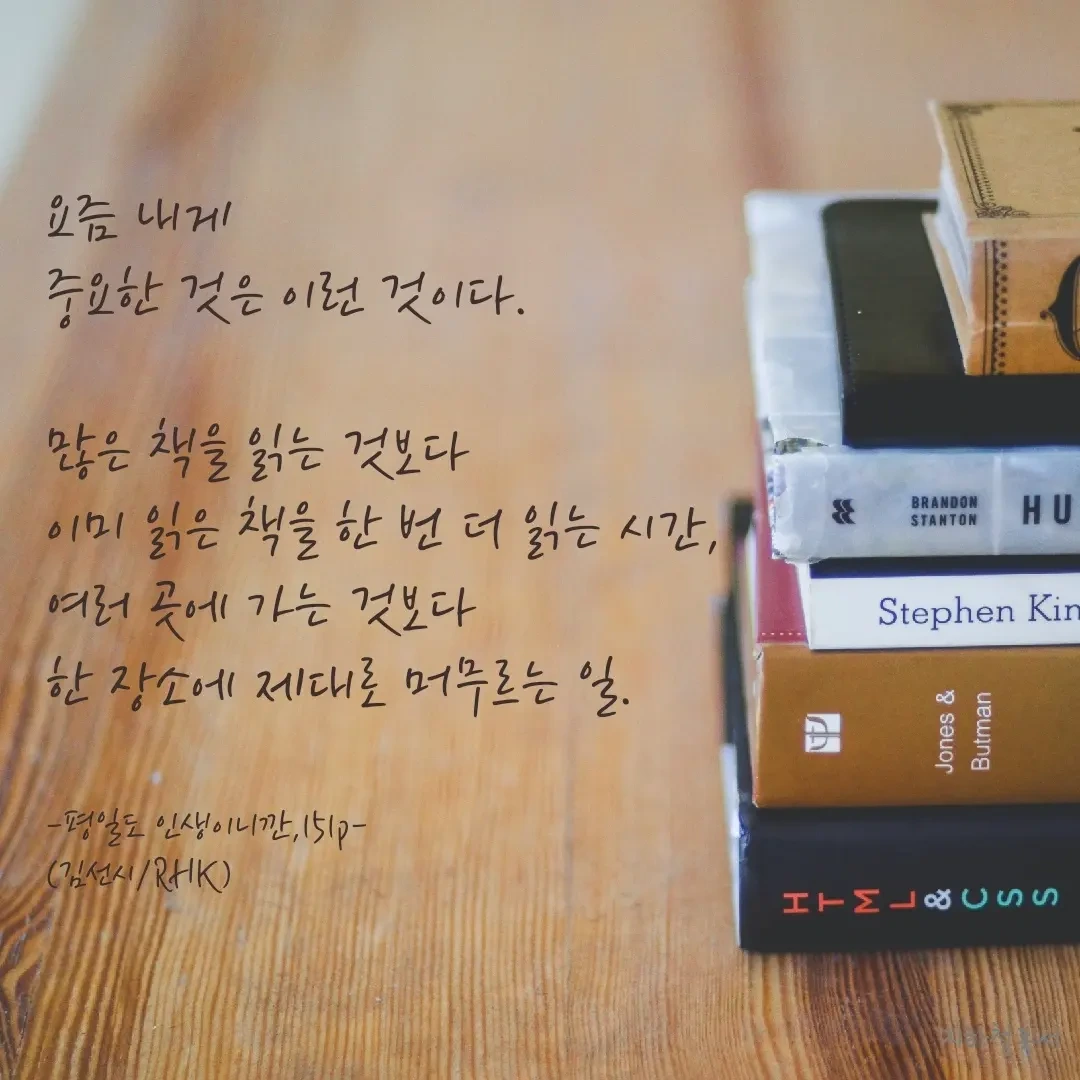 요즘 내게
중요한 것은 이런 것이다.
많은 책을 읽는 것보다
이미 읽은 책을 한 번 더 읽는 시간,
여러 곳에 가는 것보다
한 장소에 제대로 머무르는 일.
-평일도 인생이니깐,151p-
(김선시/RHK)
BRANDON
STANTON
HU
Stephen Kin
Jones &
Butman
HTML&CSS